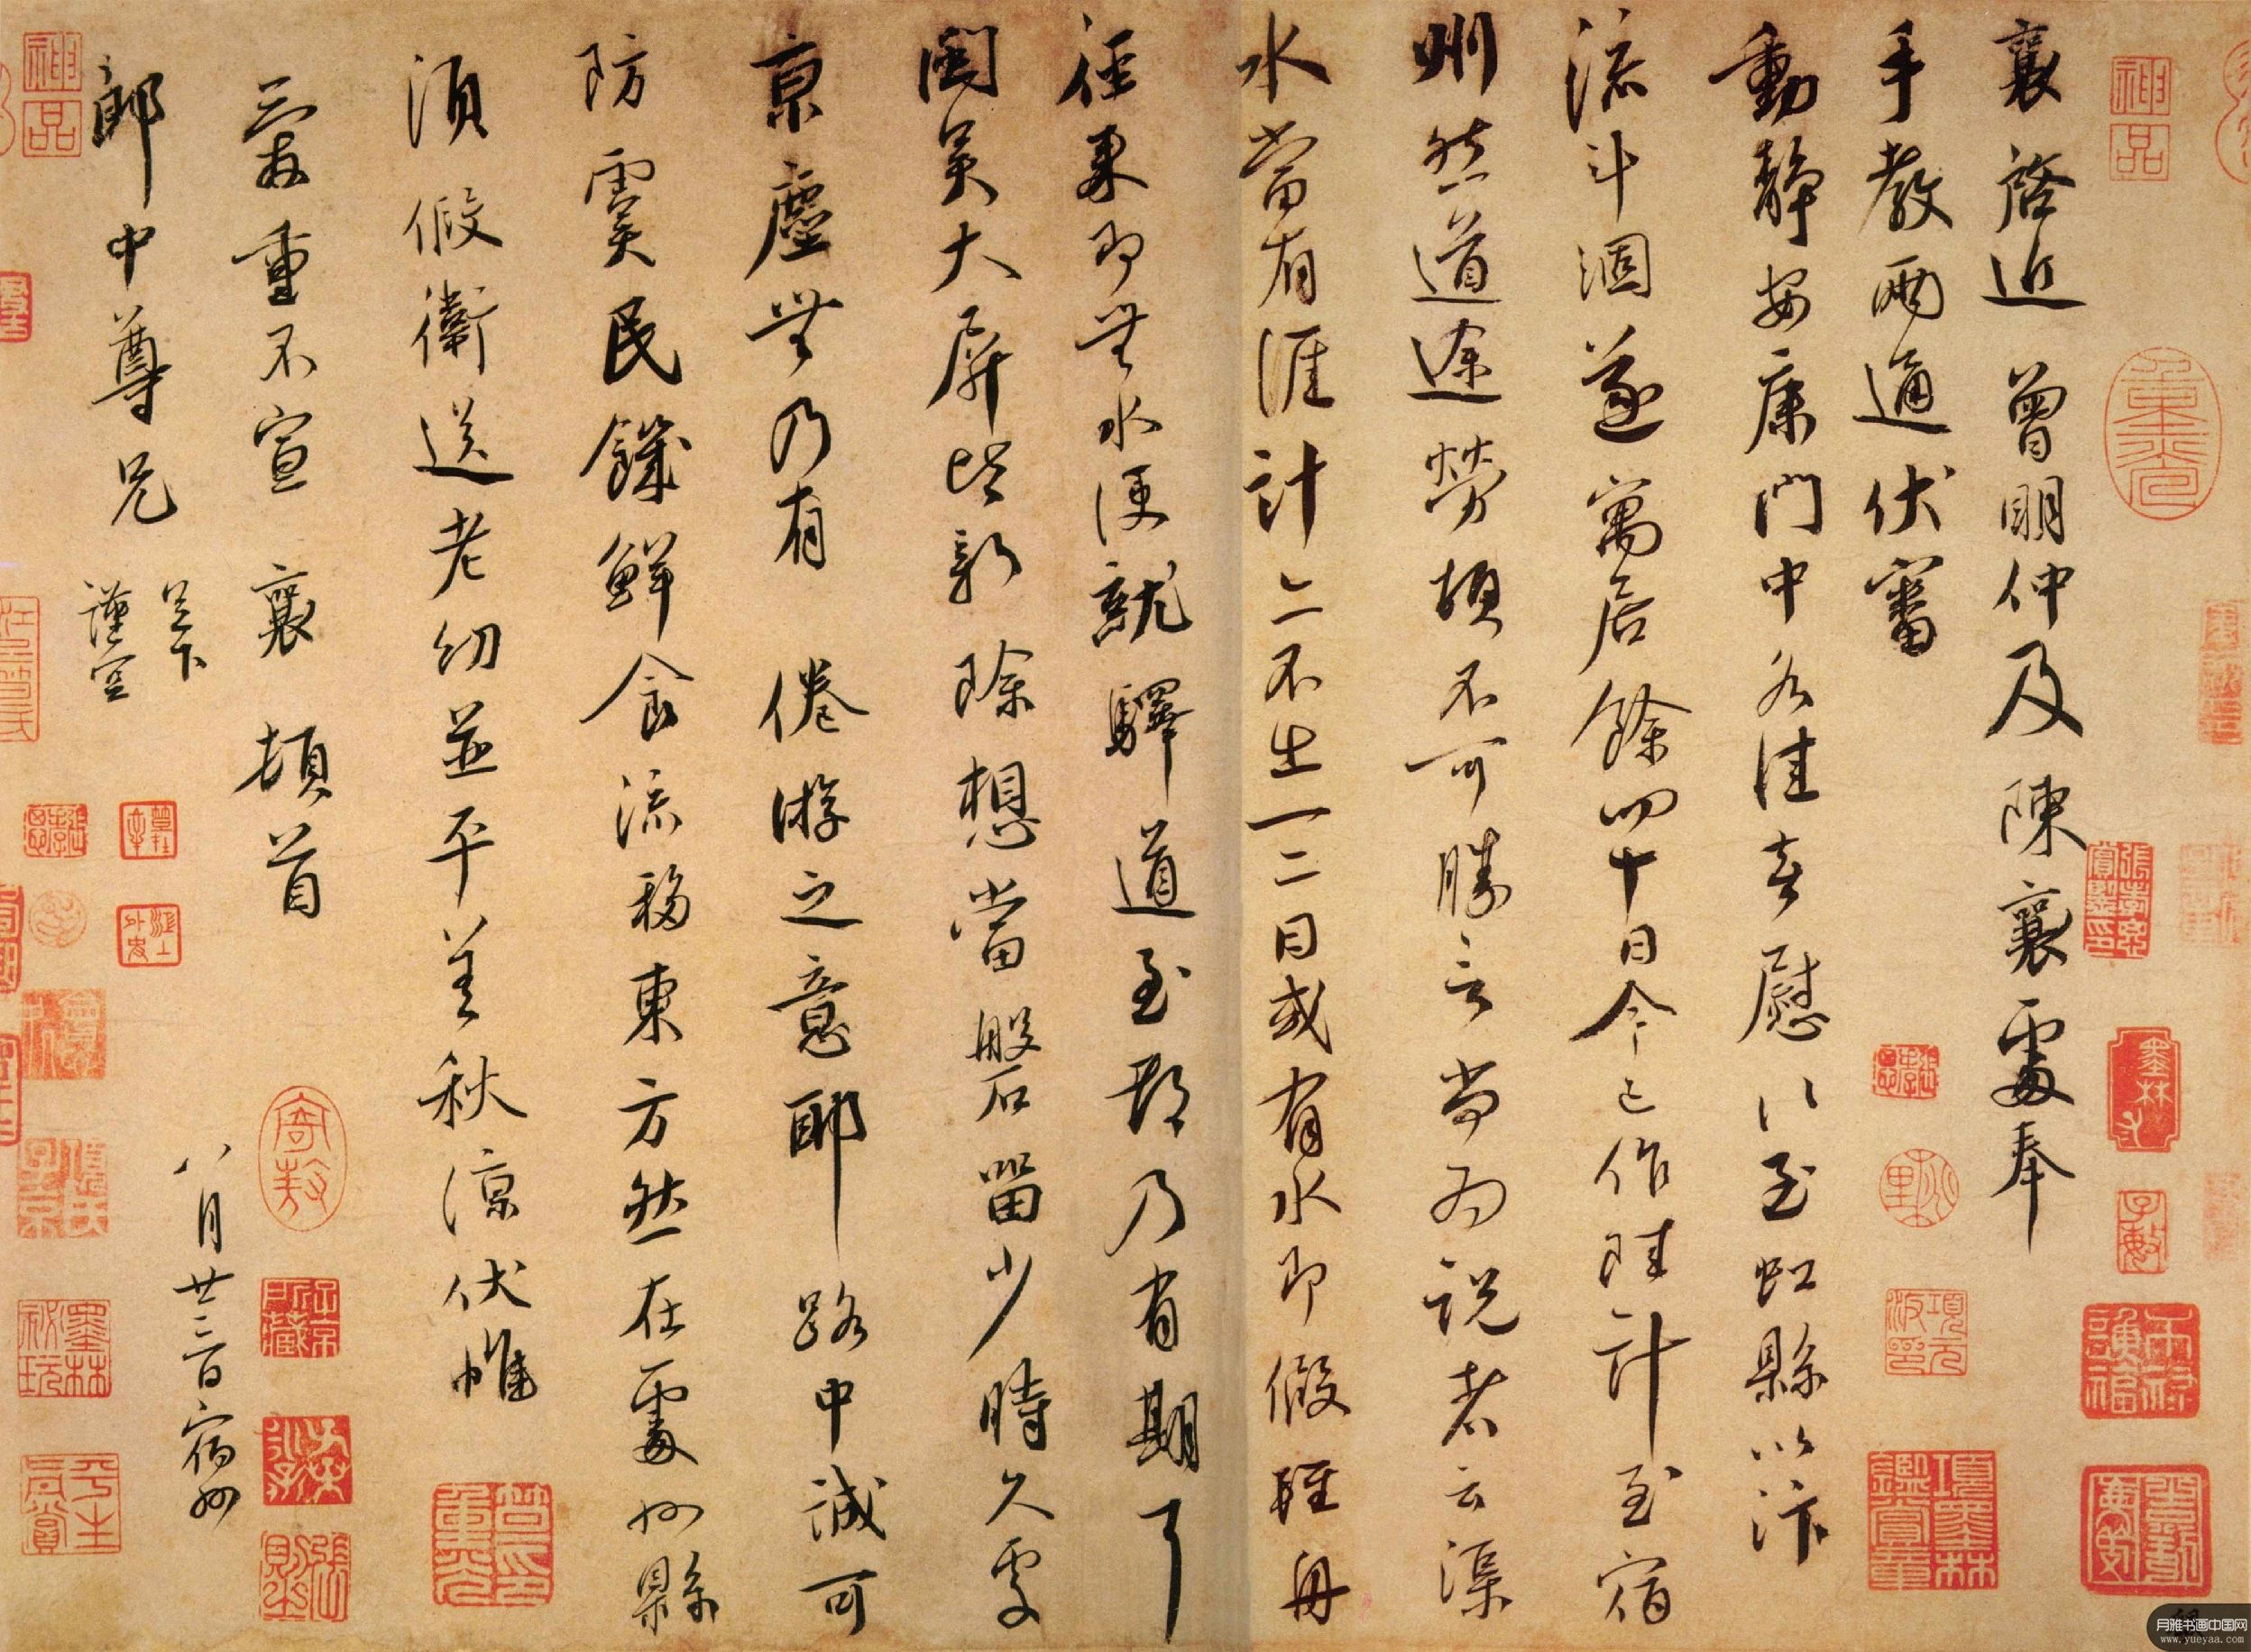 襄啓近曾明仲及陳襄處奉
手教兩通伏審
動靜安康門中各佳喜慰以至虹縣以汴
流斗涸遂寓居餘四十日今已作陸計至宿
州然道途勞頓不可勝言尚為說者云渠
水當有涯計亦不出一二日或有水即假輕舟
徑來即無水便就驛道至都乃有期耳
閩吳大屏皆新除想當磐留少時久處
京塵無乃有倦游之意耶路中誠可
防虞民饑鮮食流移東方然在處州縣
須假衛送老幼並平善秋涼伏惟
愛重不宣襄頓首
郎中尊兄足下
謹空
八月廿三日宿州
神品
神品
月雅书画中国网
www.yueyaa.com